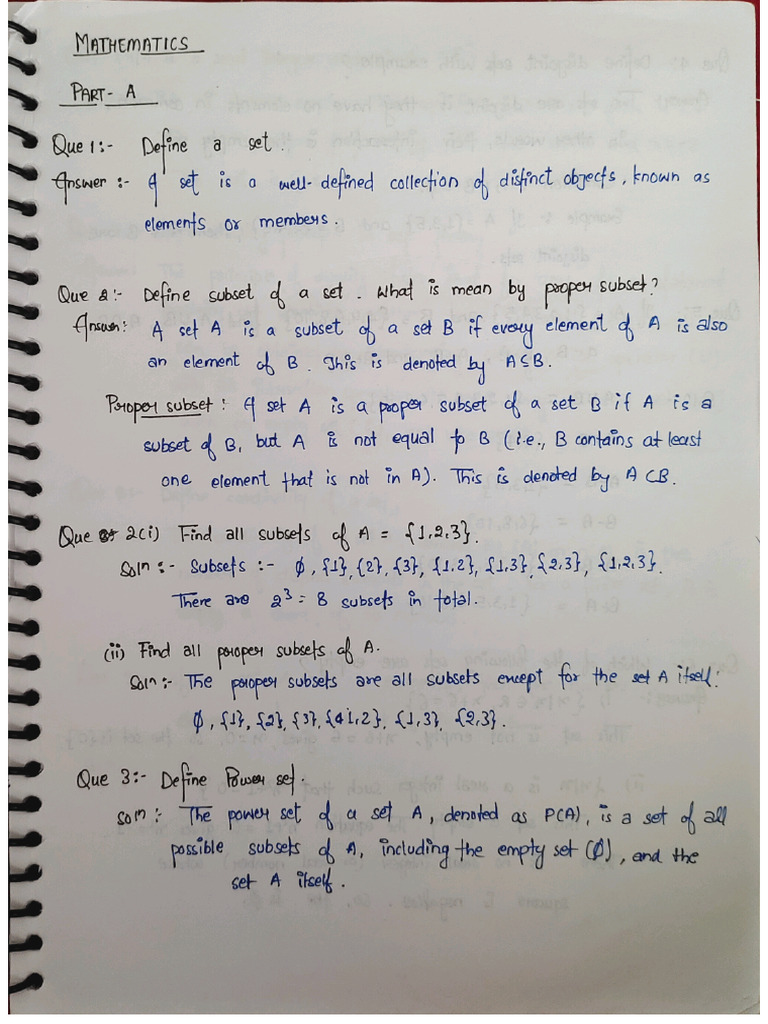 MATHEMATICS
PART- A
Que 1:- Define a set.
Answer :- A set is a well-defined collection of distinct objects, known as
elements or members.
Que 2:- Define subset of a set. What is mean by proper subset?
Answer: A set A is a subset of a set B if every element of A is also
an element of B. This is denoted by A⊆B.
Proper subset: A set A is a proper subset of a set B if A is a
subset of B, but A is not equal to B (i.e., B contains at least
one element that is not in A). This is denoted by A⊂B.
Que 2(i) Find all subsets of A = {1,2,3}.
Soln:- Subsets :- ∅, {1}, {2}, {3}, {1,2}, {1,3}, {2,3}, {1,2,3}.
There are 2³ = 8 subsets in total.
(ii) Find all proper subsets of A.
Soln:- The proper subsets are all subsets except for the set A itself:
∅, {1}, {2}, {3}, {1,2}, {1,3}, {2,3}.
Que 3:- Define Power set.
Soln: The power set of a set A, denoted as P(A), is a set of all
possible subsets of A, including the empty set (∅), and the
set A itself.